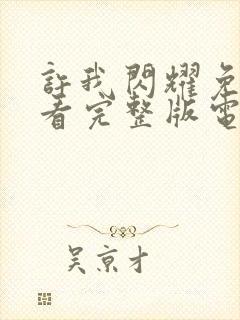 許我閃耀免
看完整版電
吳京才